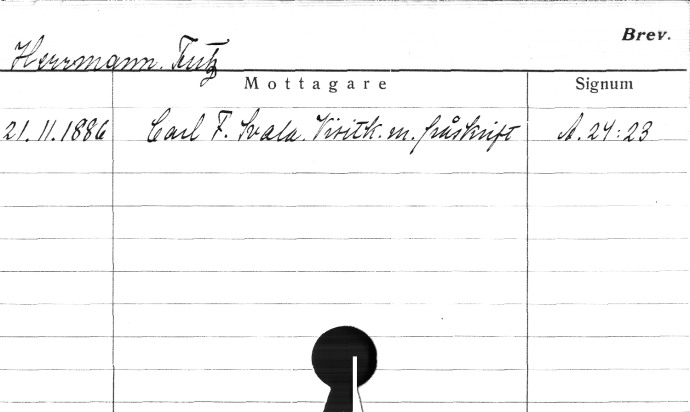 Brev.
Herrmann. Fritz
Mottagare Signum
21. 11. 1886 Carl F. Svala. Visitk. m. påskrift A. 24:23